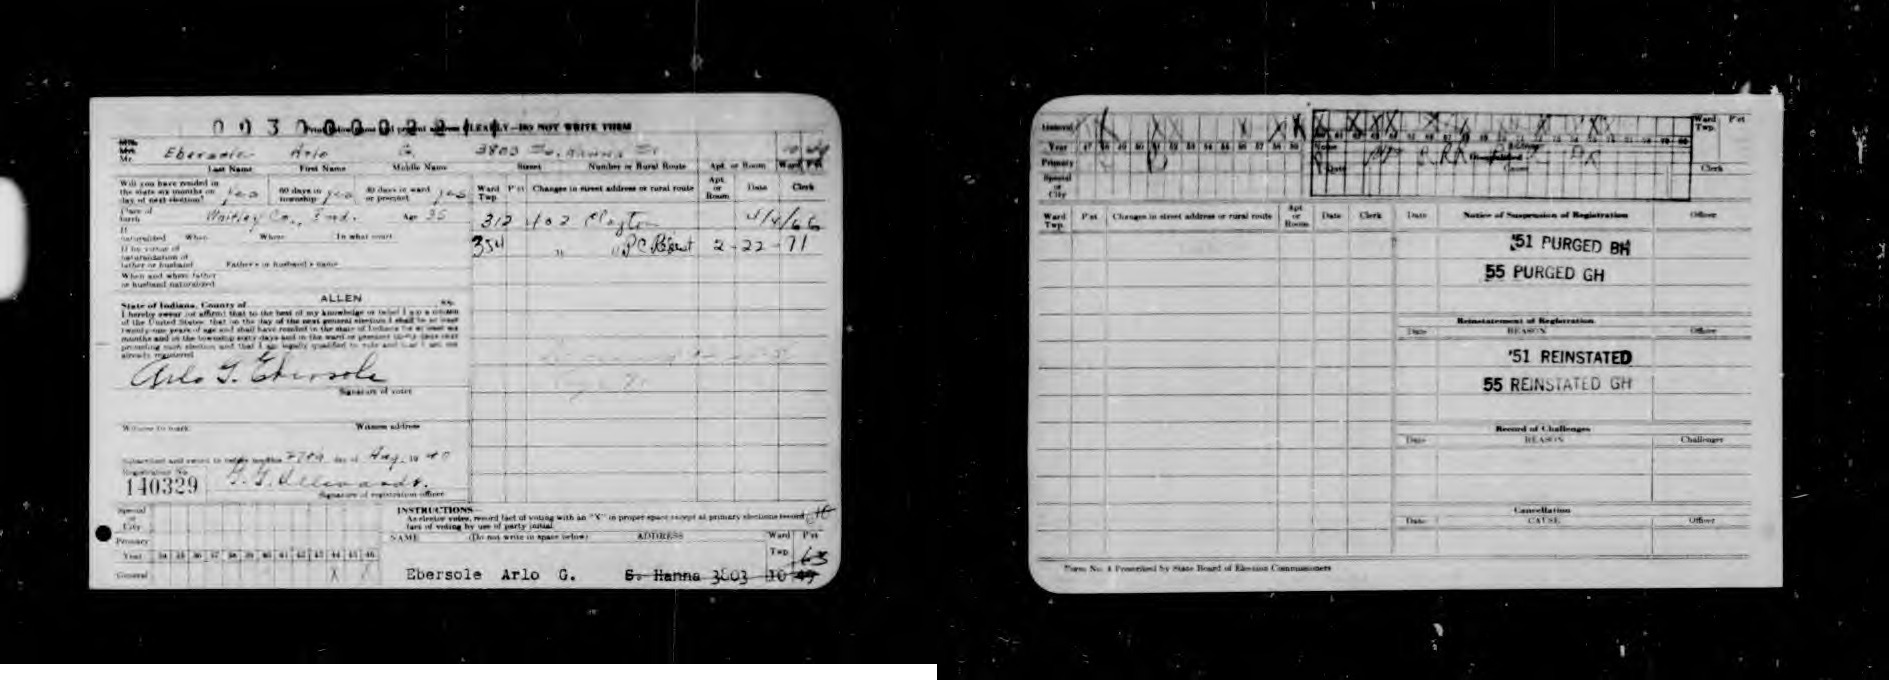 Print below name and present address CLEARLY—DO NOT WRITE THEM
Mr. Ebersole Arlo G. 3803 So. Hanna St.
Last Name First Name Middle Name Street Number or Rural Route Apt. or Room Ward Pct
Will you have resided in the state six months on day of next election? yes 60 days in township? yes 30 days in ward or precinct yes
Ward Twp. Pct Changes in street address or rural route Apt. or Room Date Clerk
Place of birth Whitley Co., Ind. Age 35
312 402 Clayton 4/4/66
If naturalized When Where In what court
354 " " 2-22-71
If by virtue of naturalization of father or husband Father's or husband's name
When and where father or husband naturalized
State of Indiana, County of ALLEN ss.
I hereby swear (or affirm) that to the best of my knowledge or belief I am a citizen
of the United States; that on the day of the next general election I shall be at least
twenty-one years of age and shall have resided in the state of Indiana for at least six
months and in the township sixty days and in the ward or precinct thirty days next
preceding such election and that I am legally qualified to vote and that I am not
already registered
Arlo G. Ebersole
Signature of voter
Witness to mark Witness address
Subscribed and sworn to before me this day of Aug. 19 40
Registration No.
140329
Signature of registration officer
Special or City
Primary
Year 34 35 36 37 38 39 40 41 42 43 44 45 46
General X X
INSTRUCTIONS—
As elector votes, record fact of voting with an "X" in proper space except at primary elections record
fact of voting by use of party initial.
NAME (Do not write in space below) ADDRESS Ward Twp. Pct
63
Ebersole Arlo G. S. Hanna 3803 10 49
General
Year 47 48 49 50 51 52 53 54 55 56 57 58 59
Primary
Special or City
Ward Twp. Pct
Name
Date Cause Clerk
Ward Twp. Pct Changes in street address or rural route Apt. or Room Date Clerk
Date Notice of Suspension of Registration Officer
'51 PURGED BH
55 PURGED GH
Reinstatement of Registration
Date REASON Officer
'51 REINSTATED
55 REINSTATED GH
Record of Challenges
Date REASON Challenger
Cancellation
Date CAUSE Officer
Form No. 4 Prescribed by State Board of Election Commissioners